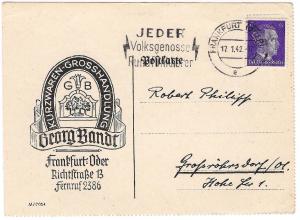 JEDER
Volksgenosse
Rundfunkhörer
Postkarte
FRANKFURT (ODER)
17.1.42
e
KURZWAREN-GROSSHANDLUNG
G B
Georg Bandt
Frankfurt-Oder
Richtstraße 13
Fernruf 2386
Robert Philipp
Großröhrsdorf/Ol.
Hohe Str. 1